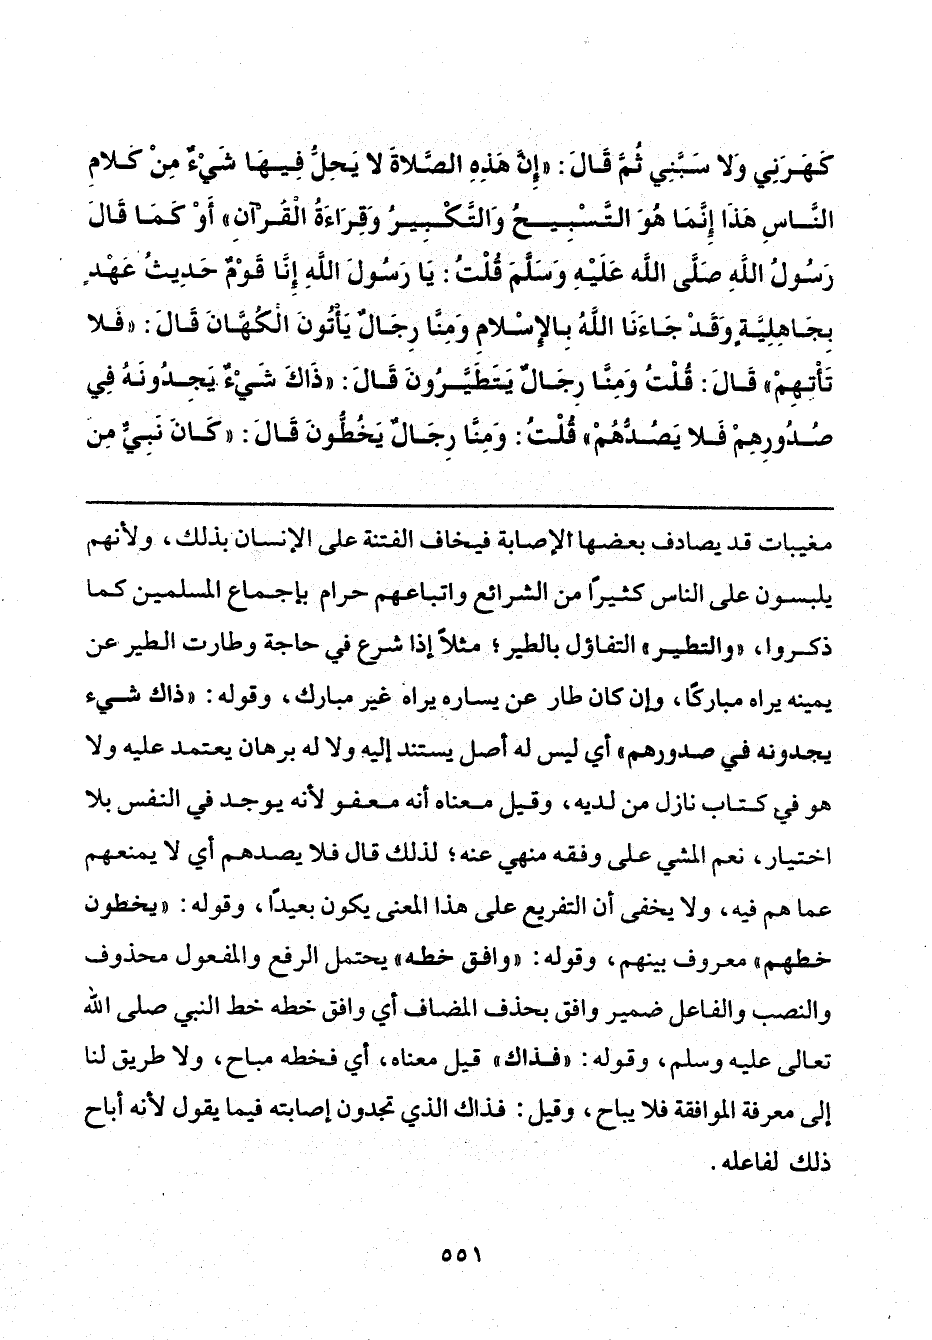 كَهَرَنِي وَلا سَبَّنِي ثُمَّ قَالَ: «إِنَّ هَذِهِ الصَّلاةَ لا يَحِلُّ فِيهَا شَيْءٌ مِنْ كَلامِ
النَّاسِ هَذَا إِنَّمَا هُوَ التَّسْبِيحُ وَالتَّكْبِيرُ وَقِرَاءَةُ الْقُرْآنِ» أَوْ كَمَا قَالَ
رَسُولُ اللَّهِ صَلَّى اللَّه عَلَيْهِ وَسَلَّمَ قُلْتُ: يَا رَسُولَ اللَّهِ إِنَّا قَوْمٌ حَدِيثُ عَهْدٍ
بِجَاهِلِيَّةٍ وَقَدْ جَاءَنَا اللَّهُ بِالإِسْلامِ وَمِنَّا رِجَالٌ يَأْتُونَ الْكُهَّانَ قَالَ: «فَلا
تَأْتِهِمْ» قَالَ: قُلْتُ وَمِنَّا رِجَالٌ يَتَطَيَّرُونَ قَالَ: «ذَاكَ شَيْءٌ يَجِدُونَهُ فِي
صُدُورِهِمْ فَلا يَصُدُّهُمْ» قُلْتُ: وَمِنَّا رِجَالٌ يَخُطُّونَ قَالَ: «كَانَ نَبِيٌّ مِنَ
مغيبات قد يصادف بعضها الإصابة فيخاف الفتنة على الإنسان بذلك، ولأنهم
يلبسون على الناس كثيرًا من الشرائع واتباعهم حرام بإجماع المسلمين كما
ذكروا، «والتطير» التفاؤل بالطير؛ مثلاً إذا شرع في حاجة وطارت الطير عن
يمينه يراه مباركًا، وإن كان طار عن يساره يراه غير مبارك، وقوله: «ذاك شيء
يجدونه في صدورهم» أي ليس له أصل يستند إليه ولا له برهان يعتمد عليه ولا
هو في كتاب نازل من لديه، وقيل معناه أنه معفو لأنه يوجد في النفس بلا
اختيار، نعم المشي على وفقه منهي عنه؛ لذلك قال فلا يصدهم أي لا يمنعهم
عما هم فيه، ولا يخفى أن التفريع على هذا المعنى يكون بعيدًا، وقوله: «يخطون
خطهم» معروف بينهم، وقوله: «وافق خطه» يحتمل الرفع والمفعول محذوف
والنصب والفاعل ضمير وافق بحذف المضاف أي وافق خطه خط النبي صلى الله
تعالى عليه وسلم، وقوله: «فذاك» قيل معناه، أي فخطه مباح، ولا طريق لنا
إلى معرفة الموافقة فلا يباح، وقيل: فذاك الذي تجدون إصابته فيما يقول لأنه أباح
ذلك لفاعله.
٥٥١